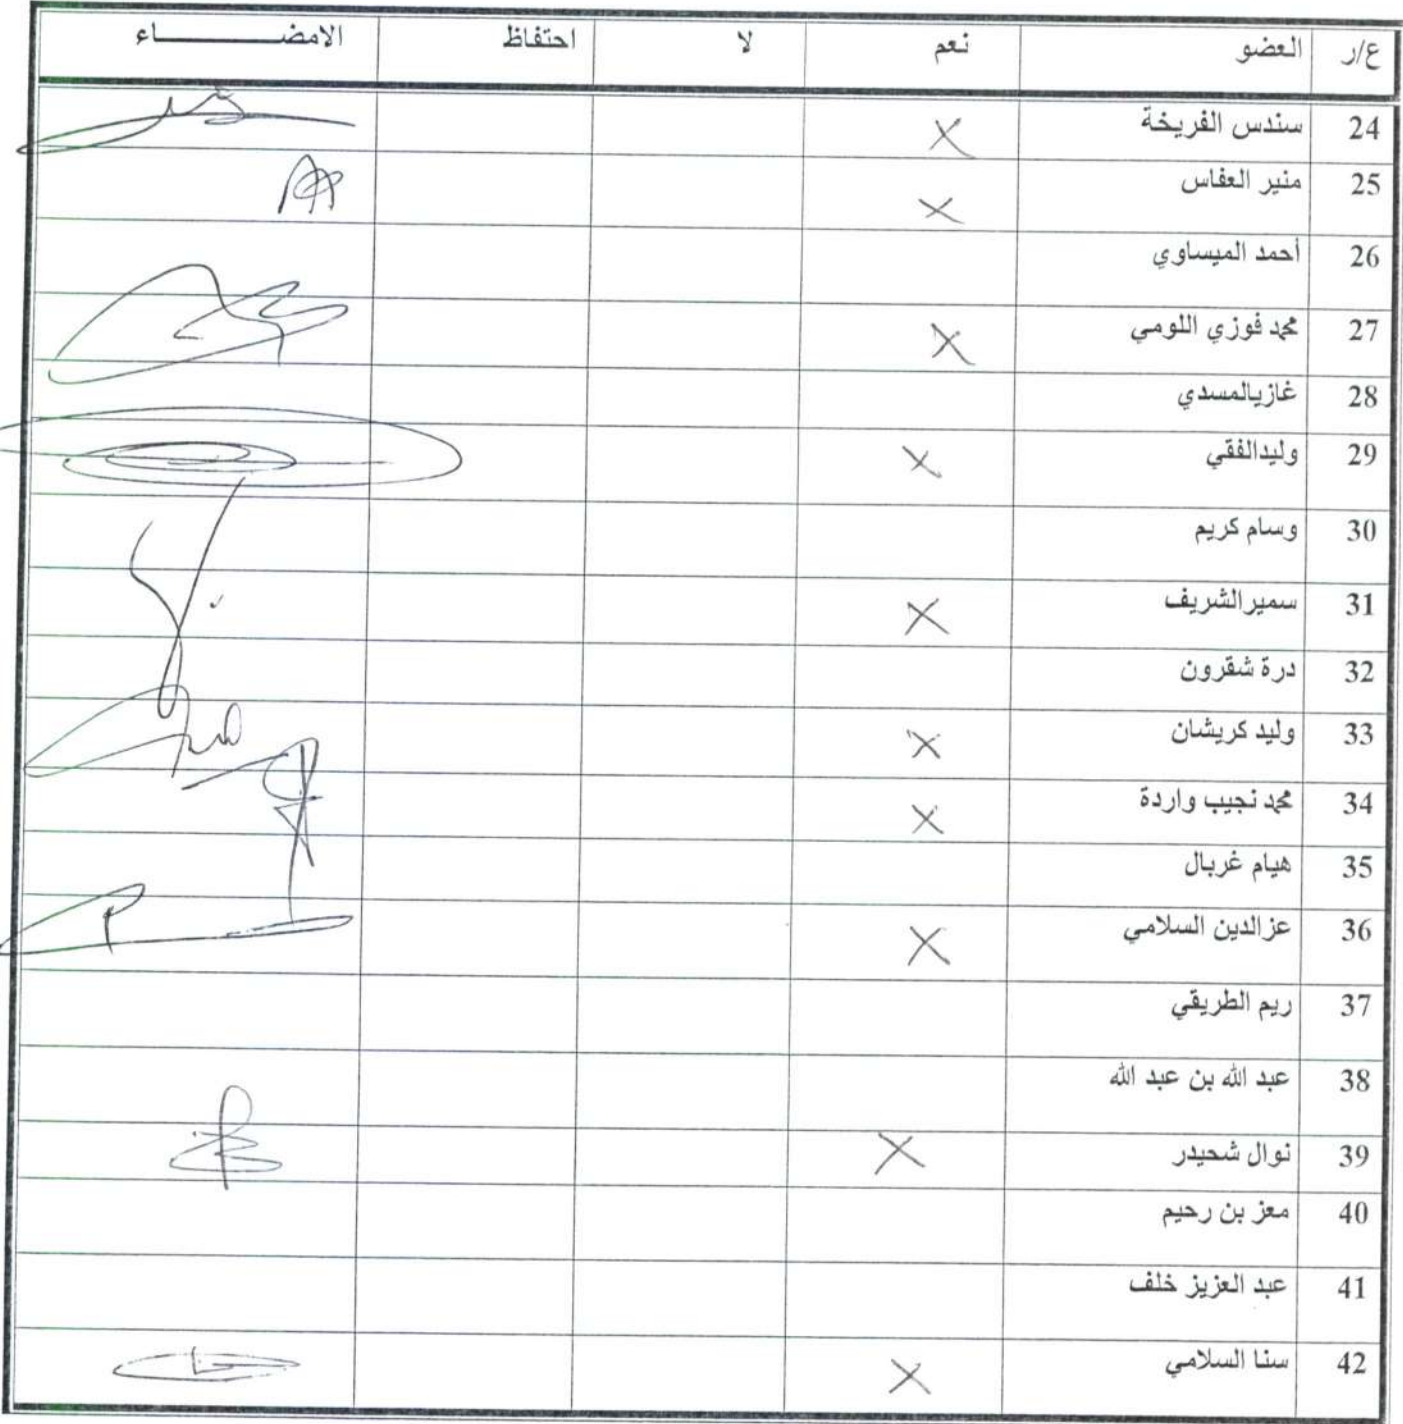 ع/ر العضو نعم لا احتفاظ الامضـــــــاء
24 سندس الفريخة X
25 منير العفاس X
26 أحمد الميساوي
27 محمد فوزي اللومي X
28 غازيالمسدي
29 وليدالفقي X
30 وسام كريم
31 سميرالشريف X
32 درة شقرون
33 وليد كريشان X
34 محمد نجيب واردة X
35 هيام غربال
36 عزالدين السلامي X
37 ريم الطريقي
38 عبد الله بن عبد الله
39 نوال شحيدر X
40 معز بن رحيم
41 عبد العزيز خلف
42 سنا السلامي X